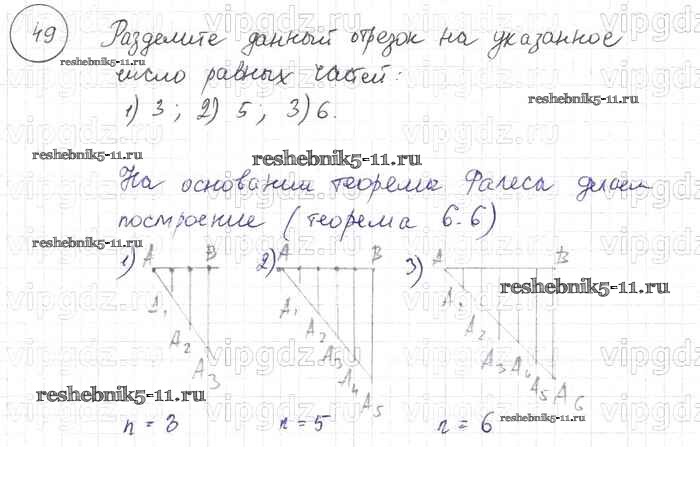 49 Разделите данный отрезок на указанное
число равных частей:
1) 3; 2) 5; 3) 6.
На основании теорема Фалеса делаем
построение (теорема 6.6)
1) A B 2) A B 3) A B
A1 A2 A3
A1 A2 A3 A4 A5
A1 A2 A3 A4 A5 A6
n = 3 n = 5 n = 6
reshebnik5-11.ru
reshebnik5-11.ru
reshebnik5-11.ru
reshebnik5-11.ru
reshebnik5-11.ru
reshebnik5-11.ru
reshebnik5-11.ru
reshebnik5-11.ru
vipgdz.ru